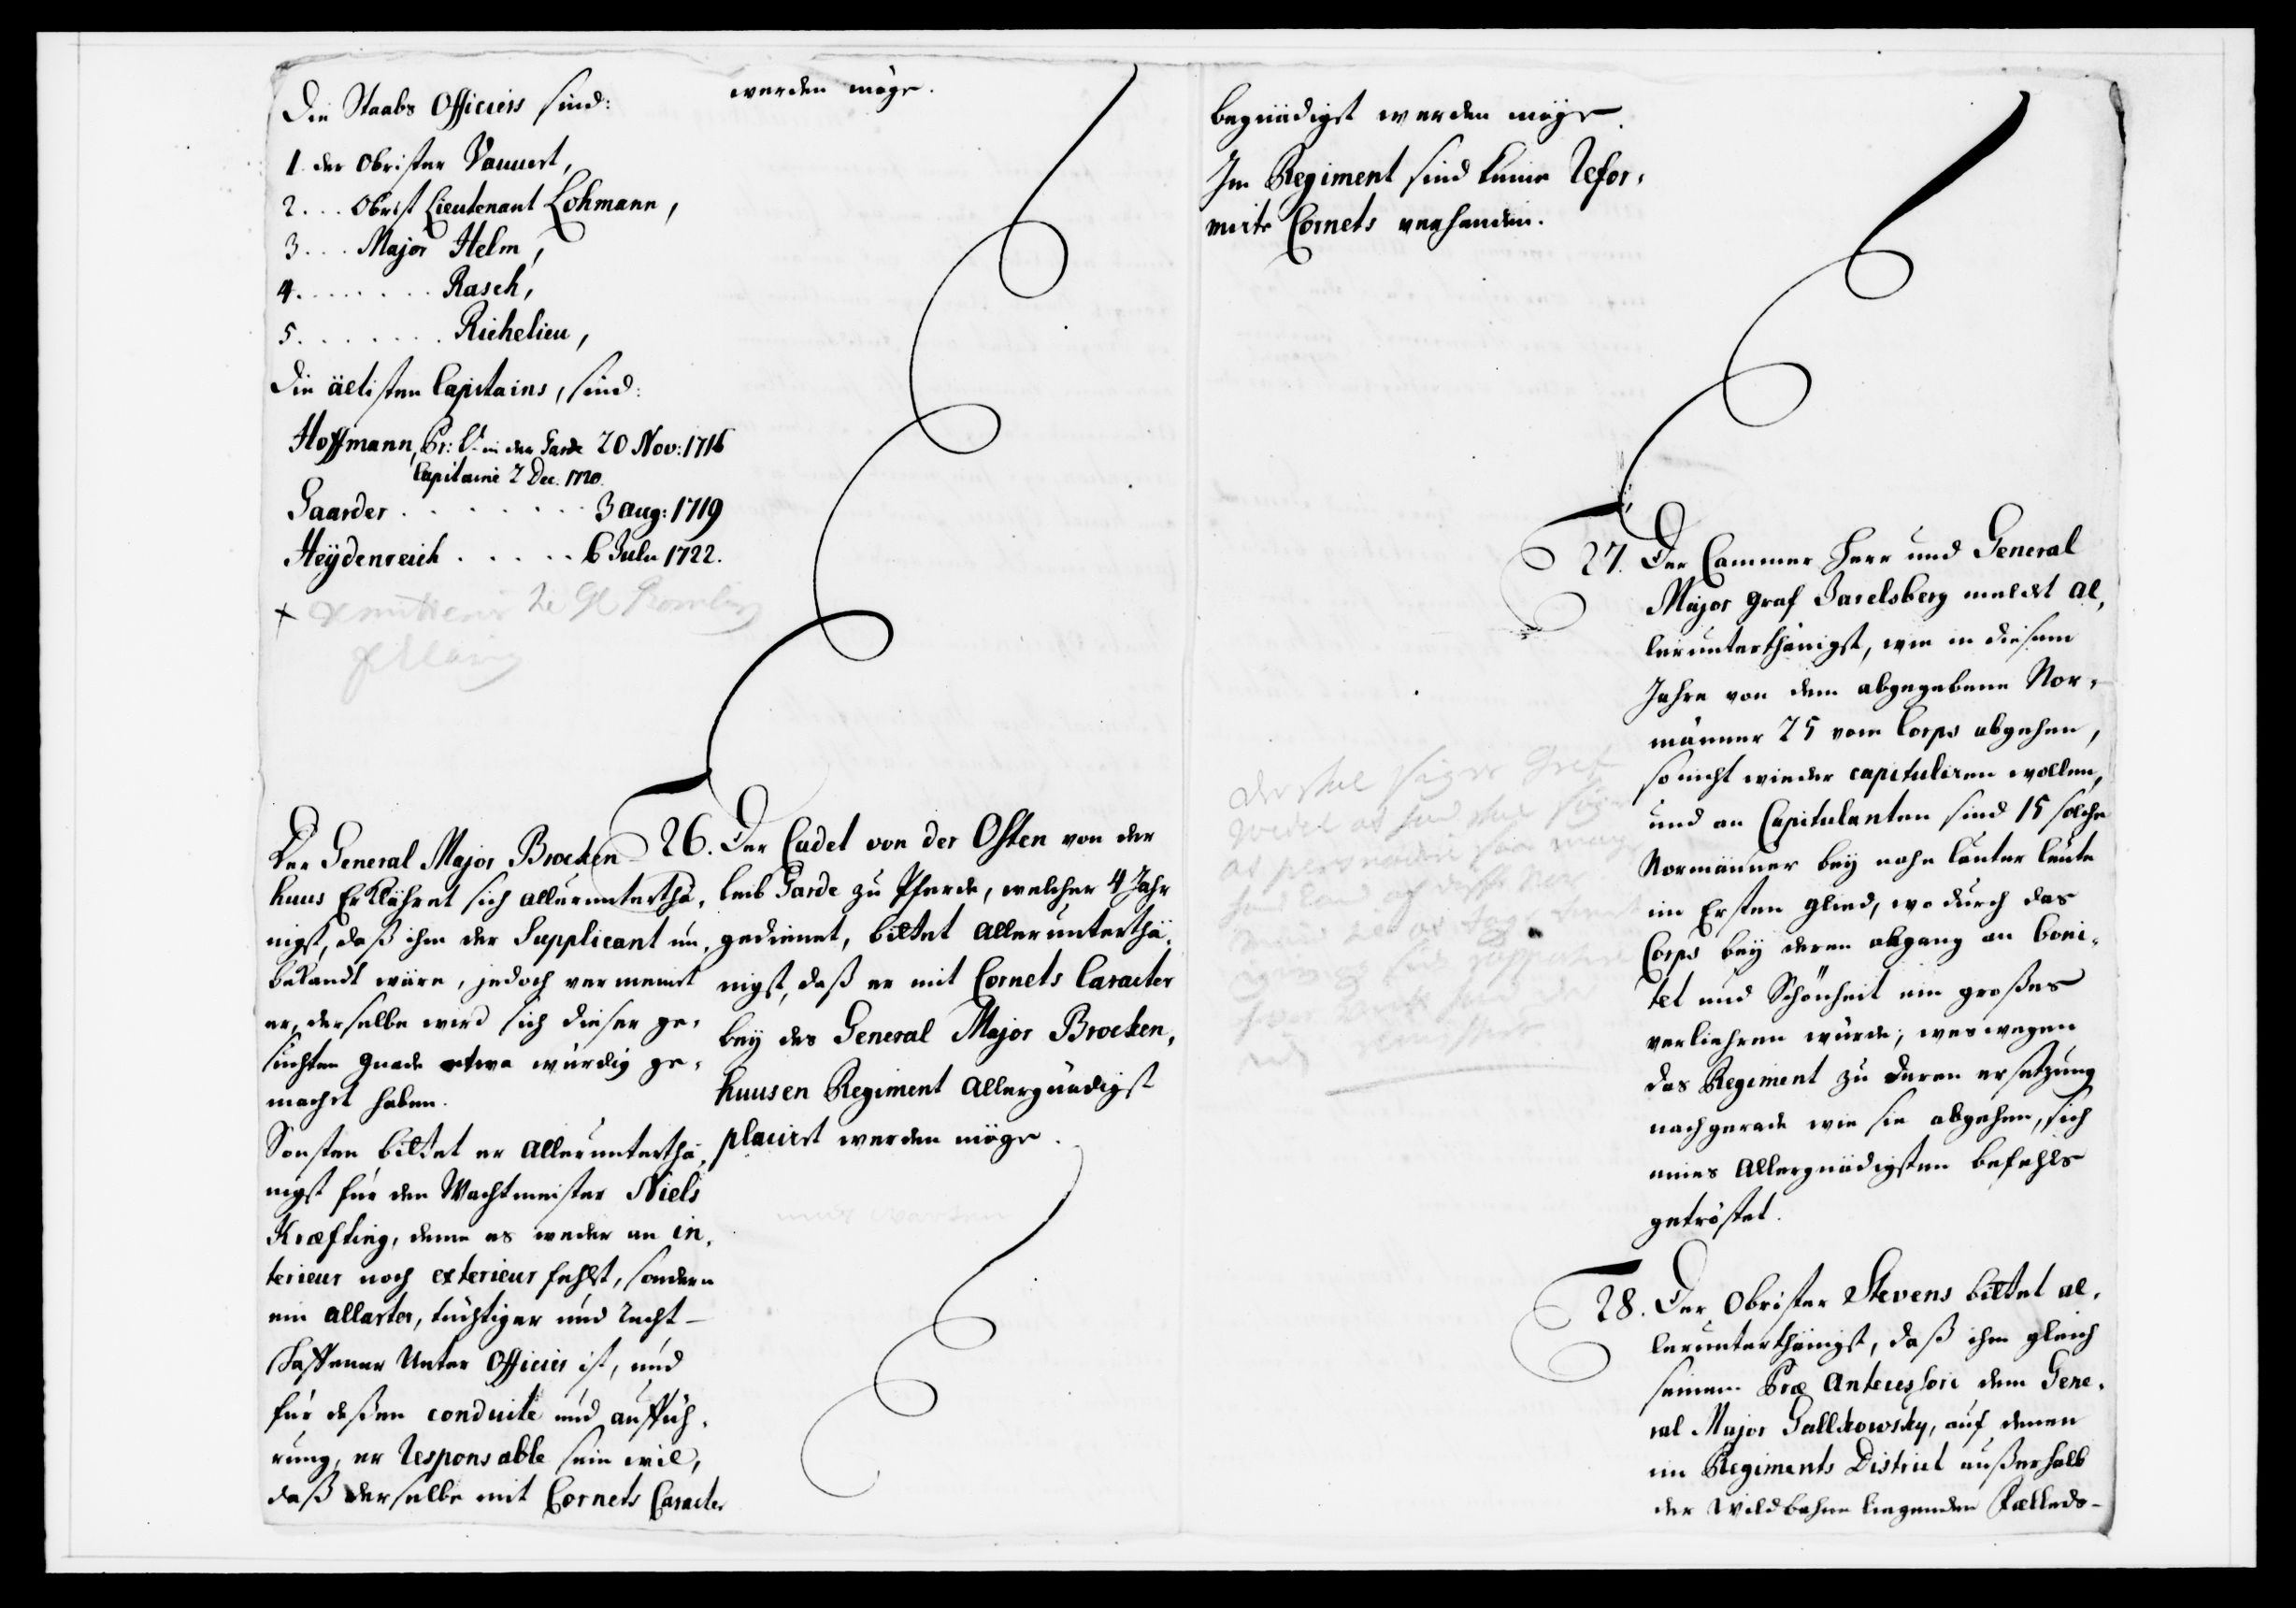 Die Staabs Officiers sind:
1. der Obrister Vauert,
2... Obrist Lieutenant Lohmann,
3... Major Helm,
4........ Rasch,
5........ Richelieu,
Die ältisten Capitains, sind:
Hoffmann, Pr: Lt. in der Garde 20 Nov: 1716
Capitaine 2 Dec. 1720.
Gaarder ........ 3 aug: 1719
Heÿdenreich ..... 6 Julii 1722.
werden möge.
Der General Major Brocken-
huus Erklähret sich allerunterthä,
nigst, daß ihm der Supplicant un,
bekandt wäre, jedoch vermeint
er, derselbe wird sich dieser ge,
suchten Gnade etwa würdig ge,
macht haben.
Sonsten bittet er allerunterthä,
nigst für den Wachtmeister Niels
Kræfting, deme es weder an in,
terieur noch exterieur fehlet, sondern
ein allarter, tüchtiger und recht-
schaffener Unter Officier ist, und
für deßen conduite und aufführ,
rung, er responsable sein wil,
daß derselbe mit Cornets Caracter
26. Der Cadet von der Osten von der
leib Garde zu Pferde, welcher 4 Jahr
gedienet, bittet allerunterthä,
nigst, daß er mit Cornets Caracter
bey des General Major Brocken,
huusen Regiment allergnädigst
placiret werden möge.
begnädiget werden möge.
Im Regiment sind keine Refor,
mirte Cornets verhanden.
27. Der Cammer Herr und General
Major Graf Jarelsberg meldet al,
lerunterthänigst, wie in diesem
Jahre von dem abgegebene Nor,
männer 25 vom Corps abgehen,
so nicht wieder capituliren wollen,
und an Capitulanten sind 15 solche
Normänner bey nahe lauter leute
im Ersten Glied, wodurch das
Corps bey deren abgang an boni,
tet und Schönheit ein großes
verliehren würde; weswegen
das Regiment zu deren ersetzung
nachgerade wie sie abgehen, sich
eines allergnädigsten befehls
getröstet.
28. Der Obrister Stevens bittet al,
lerunterthänigst, daß ihm gleich
seinem Præ Antecessori dem Gene,
ral Major Gallskowsky, auf denen
im Regiments District außerhalb
der Wildbahne liegenden Fælleds-